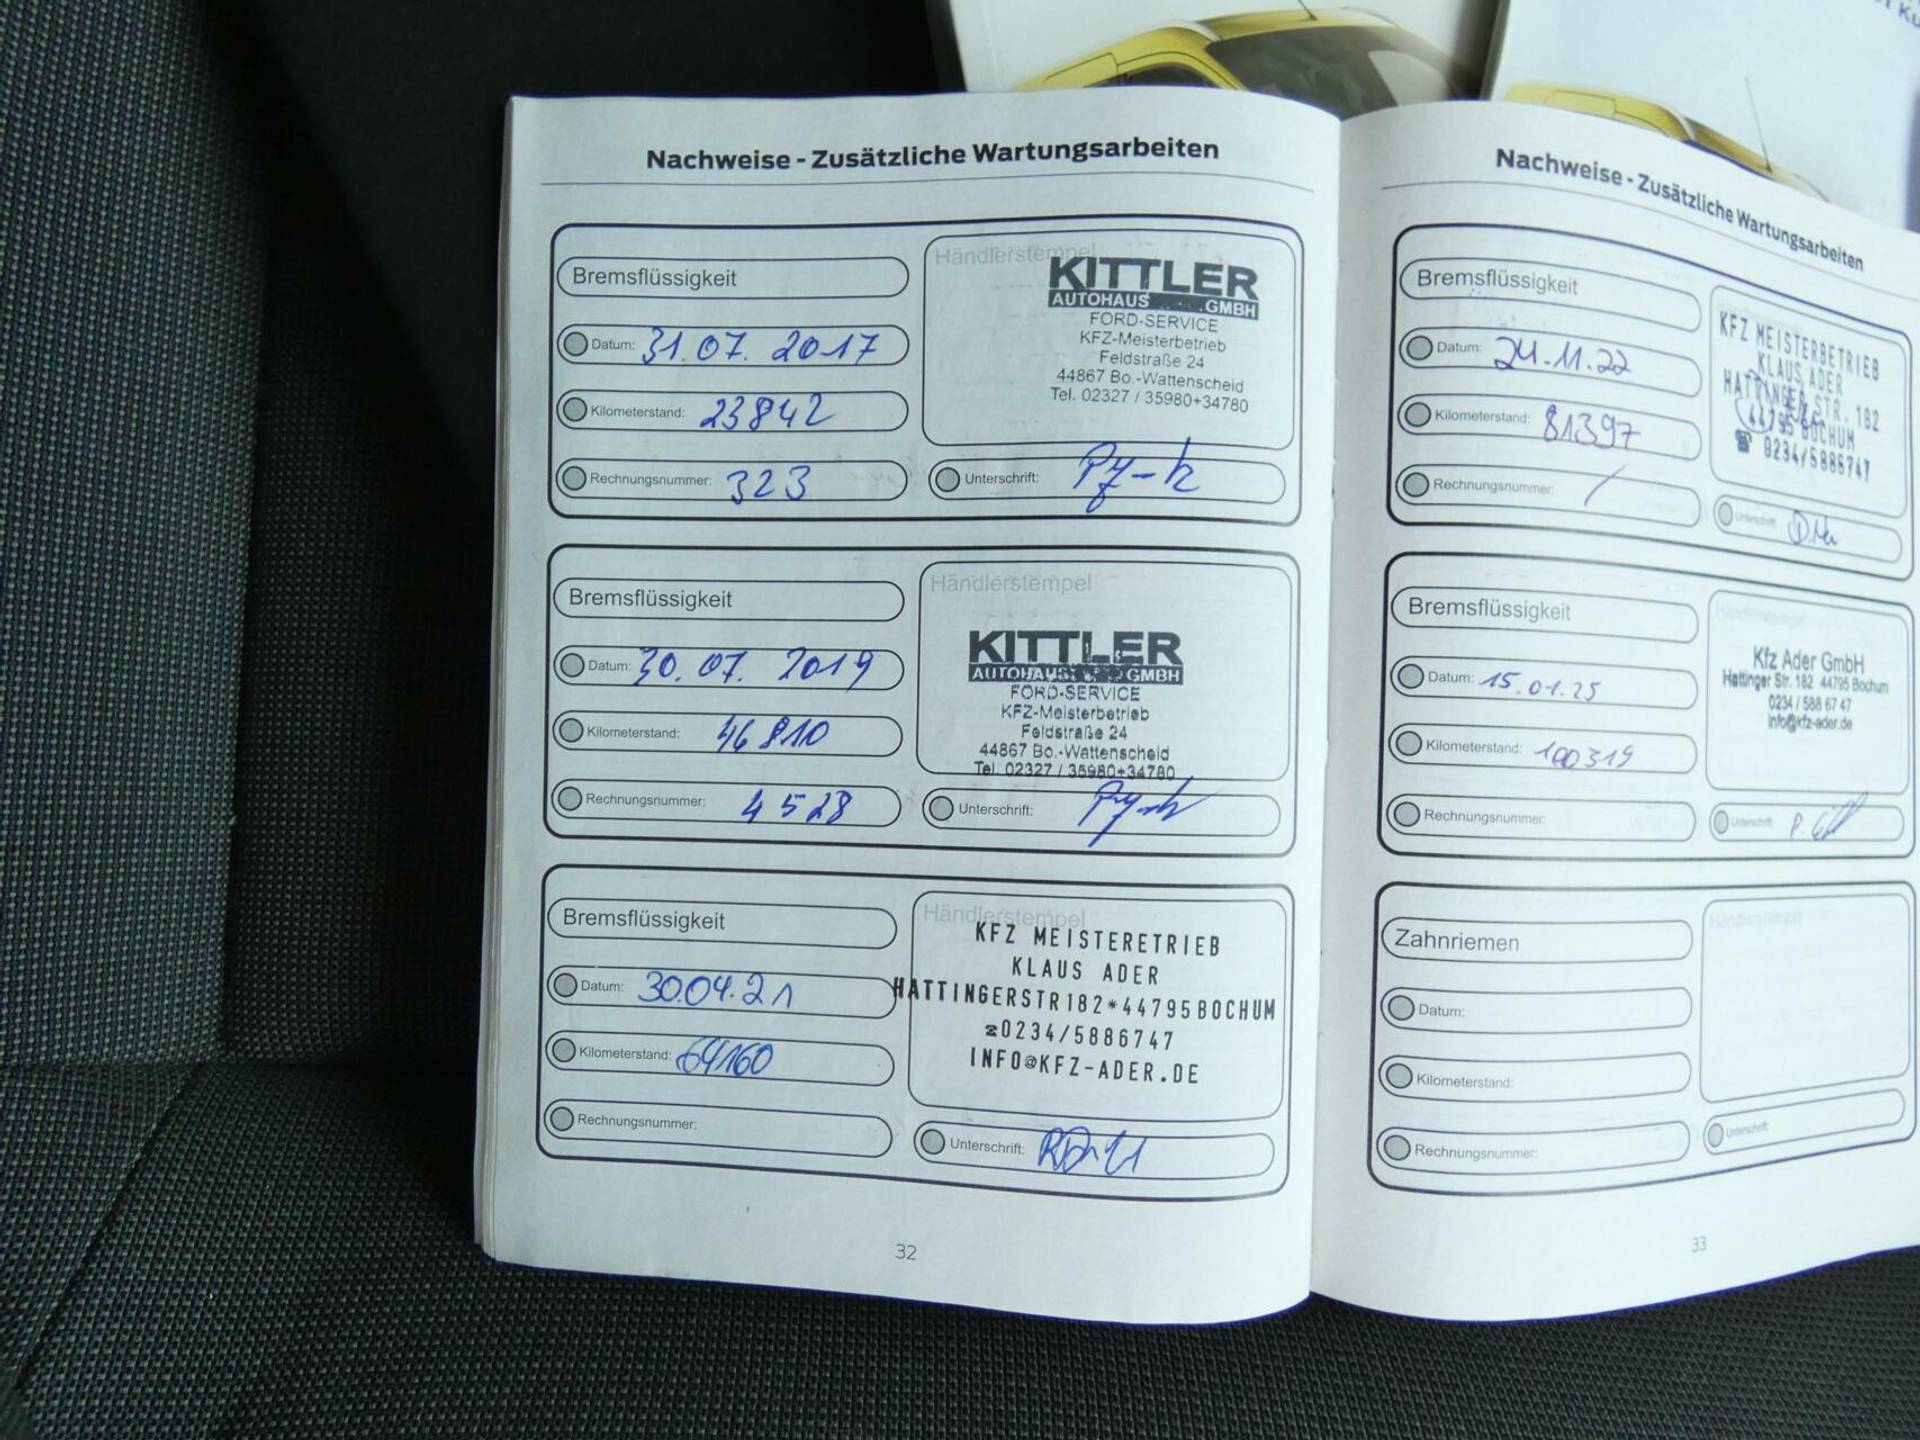 Nachweise - Zusätzliche Wartungsarbeiten
Bremsflüssigkeit
Datum: 31.07.2017
Kilometerstand: 23842
Rechnungsnummer: 323
Händlerstempel
KITTLER
AUTOHAUS GMBH
FORD-SERVICE
KFZ-Meisterbetrieb
Feldstraße 24
44867 Bo.-Wattenscheid
Tel. 02327 / 35980+34780
Unterschrift:
Bremsflüssigkeit
Datum: 30.07.2019
Kilometerstand: 46810
Rechnungsnummer: 4528
Händlerstempel
KITTLER
AUTOHAUS GMBH
FORD-SERVICE
KFZ-Meisterbetrieb
Feldstraße 24
44867 Bo.-Wattenscheid
Tel. 02327 / 35980+34780
Unterschrift:
Bremsflüssigkeit
Datum: 30.04.21
Kilometerstand: 64160
Rechnungsnummer:
Händlerstempel
KFZ MEISTERETRIEB
KLAUS ADER
HATTINGERSTR182*44795BOCHUM
☎0234/5886747
INFO@KFZ-ADER.DE
Unterschrift:
32
Nachweise - Zusätzliche Wartungsarbeiten
Bremsflüssigkeit
Datum: 24.11.22
Kilometerstand: 81397
Rechnungsnummer: /
KFZ MEISTERBETRIEB
KLAUS ADER
HATTINGER STR. 182
44795 BOCHUM
☎ 0234/5886747
Unterschrift:
Bremsflüssigkeit
Datum: 15.01.25
Kilometerstand: 100319
Rechnungsnummer:
Händlerstempel
Kfz Ader GmbH
Hattinger Str. 182 44795 Bochum
0234 / 588 67 47
info@kfz-ader.de
Unterschrift:
Zahnriemen
Datum:
Kilometerstand:
Rechnungsnummer:
Händlerstempel
Unterschrift:
33